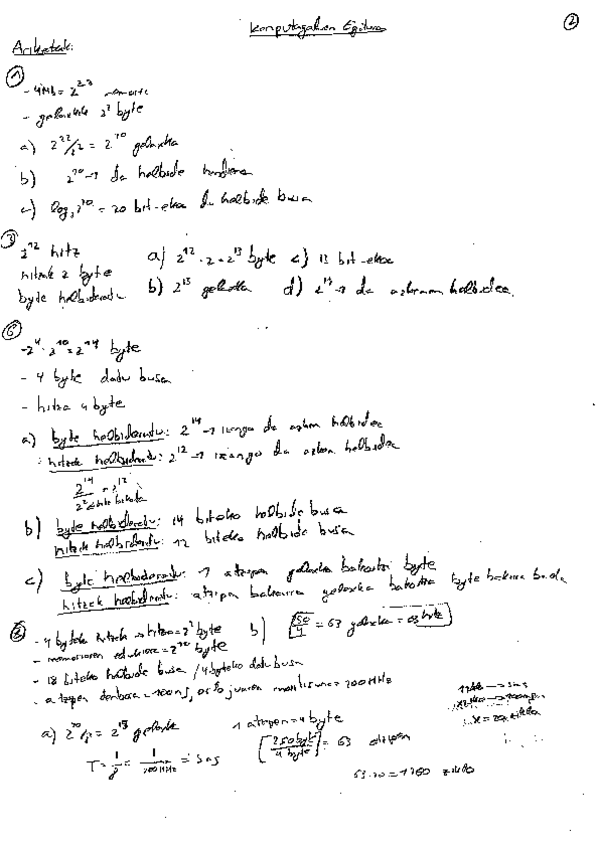 Konputagailuen Egitura
2
Ariketak:
1
- 4Mb = 2²²
- gelaxkak 2² byte
a) 2²²/2² = 2²⁰ gelaxka
b) 2²⁰-1 da helbide handiena
c) log₂ 2²⁰ = 20 bit-ekoa da helbide busa
3
2¹² hitz
hitzak 2 byte
byte helbideratu
a) 2¹² · 2 = 2¹³ byte c) 13 bit-ekoa
b) 2¹³ gelaxka d) 2¹³-1 da azkenen helbidea.
6
- 2⁴ · 2¹⁰ = 2¹⁴ byte
- 4 byte datu busa
- hitza 4 byte
a) byte helbideratu: 2¹⁴ -1 izango da azken helbidea
hitzek helbideratu: 2¹² -1 izango da azken helbidea
2¹⁴/2² = 2¹²
b) byte helbideratu: 14 biteko helbide busa
hitzek helbideratu: 12 biteko helbide busa
c) byte helbideratu: 1 atzipen gelaxka bakoitza byte
hitzek helbideratu: atzipen bakarra gelaxka bakoitza byte bakarra bada
8
- 4 byteko hitzak → hitza = 2² byte
- memoriaren edukiera = 2²⁰ byte
- 18 biteko helbide busa / 4 byteko datu busa
- atzipen denbora = 100ns, maiztasuna = 200MHz
b) [250/4] = 63 gelaxka = 63 hitz
a) 2²⁰/2² = 2¹⁸ gelaxka
T = 1/f = 1/200MHz = 5ns
1 atzipen = 4 byte
[250 byte/4 byte] = 63 atzipen
63·20 = 1260 ziklo
1 ziklo → 5ns
x ziklo → 100ns
x = 20 ziklo